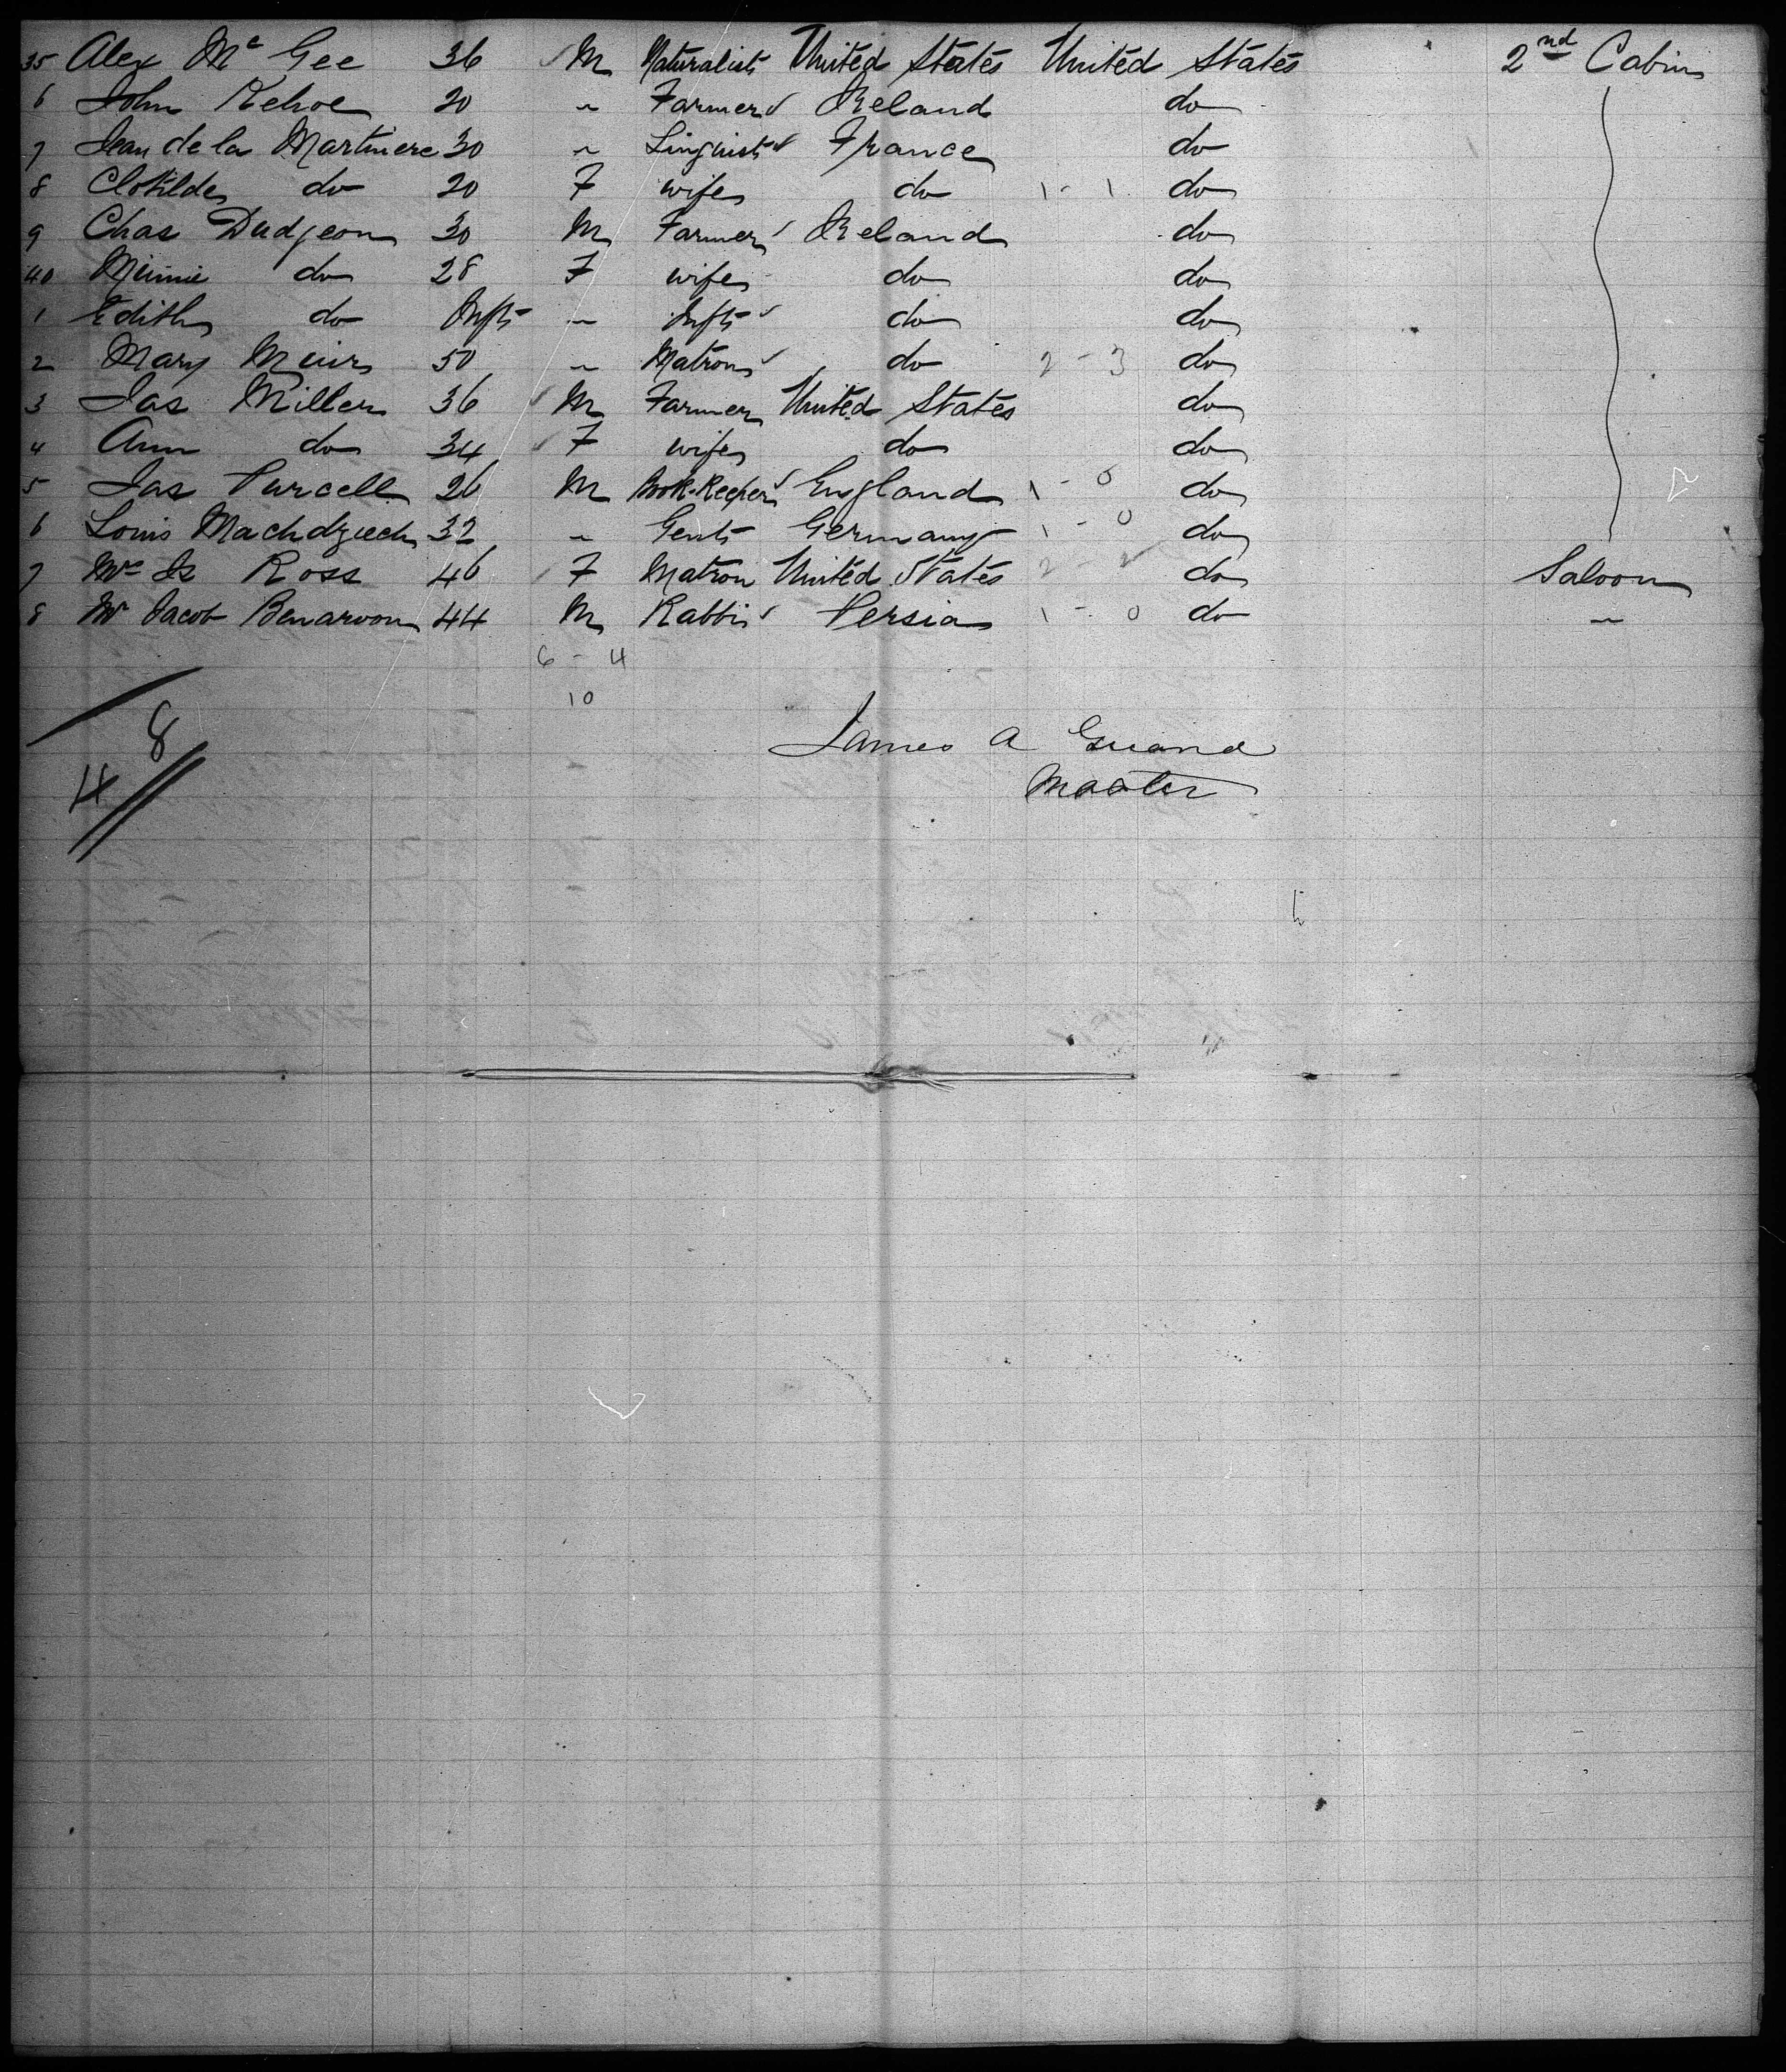 35 Alex Mc Gee 36 M Naturalist United States United States 2nd Cabin
6 John Kehoe 20 " Farmer Ireland do
7 Jean de la Martiniere 30 " Linguist France do
8 Clotilde do 20 F wife do 1 - 1 do
9 Chas Dudgeon 30 M Farmer Ireland do
40 Minnie do 28 F wife do do
1 Edith do Inft " Inft do do
2 Mary Muir 50 " Matron do 2 - 3 do
3 Jas Miller 36 M Farmer United States do
4 Ann do 34 F wife do do
5 Jas Purcell 26 M Book-Keeper England 1 - 0 do
6 Louis 32 " Gent Germany 1 - 0 do
7 Ross 46 F Matron United States 2 - 2 do Saloon
8 Mr Jacob 44 M Rabbi Persia 1 - 0 do "
6 - 4
10
8
James A
4
Master